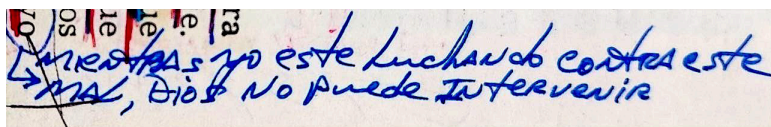 ra
e.
ue
ue
os
vo
MIENTRAS YO ESTE LUCHANDO CONTRA ESTE
MAL, DIOS NO PUEDE INTERVENIR